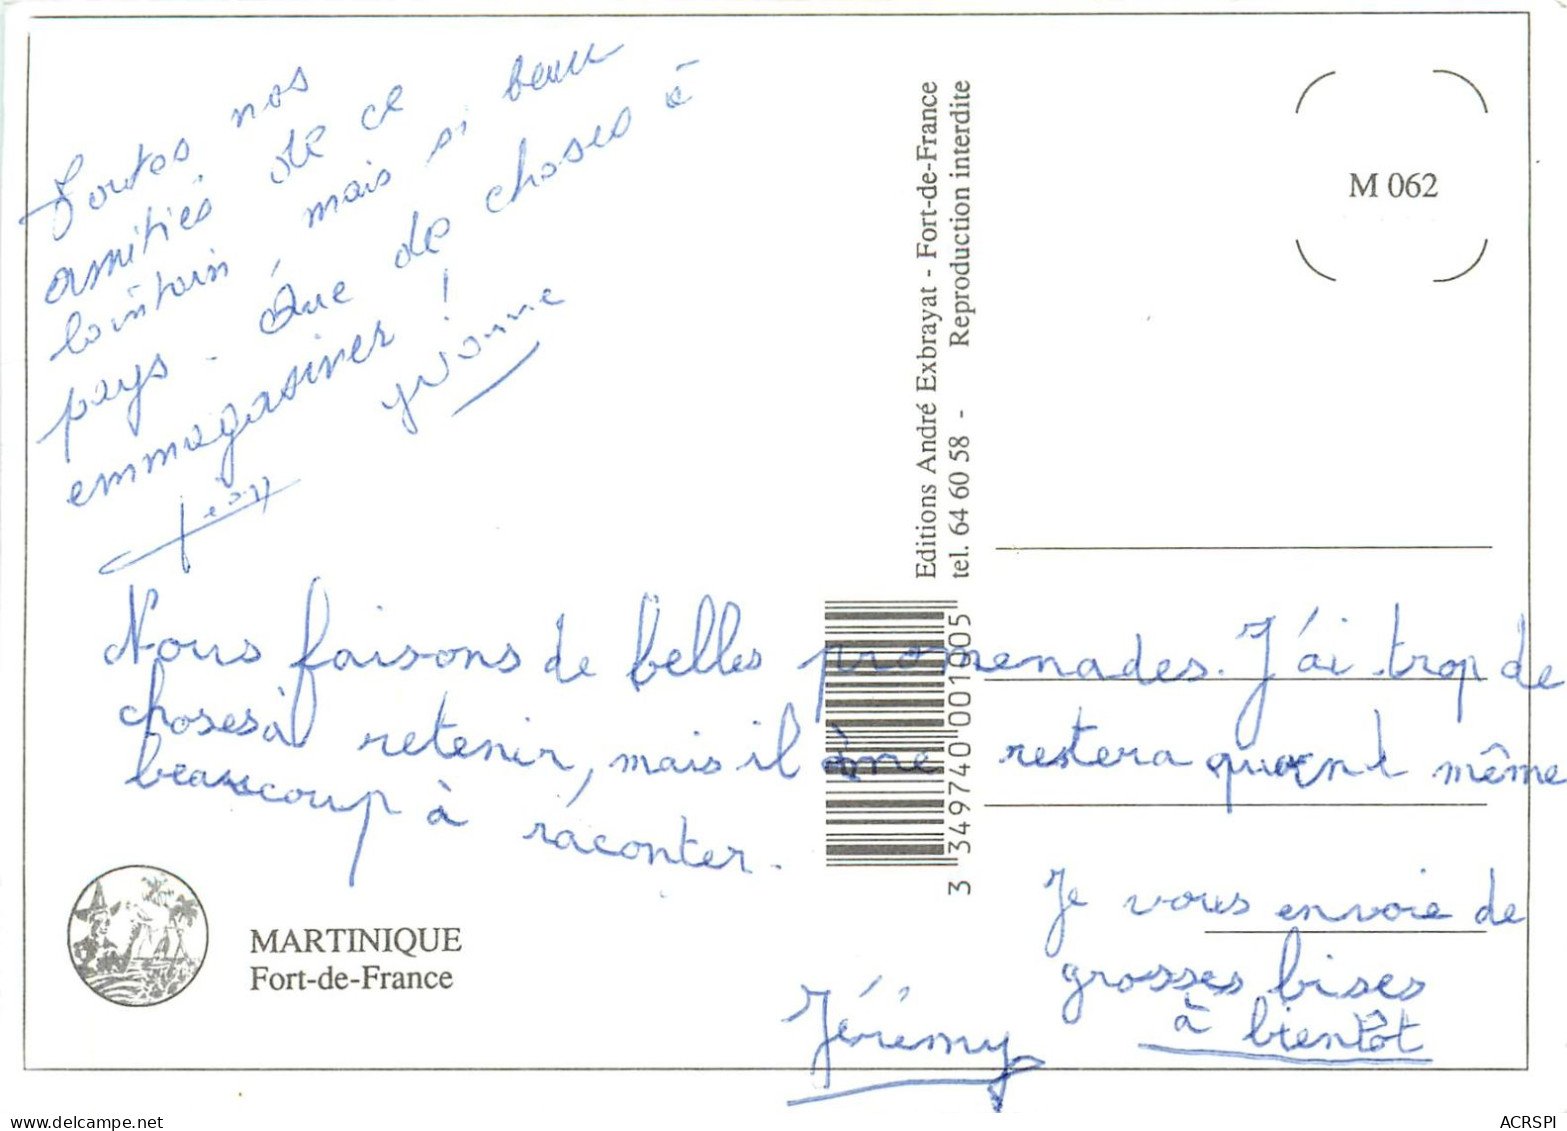 Toutes nos
amitiés de ce
lointain, mais si beau
pays. Que de choses à
emmagasiner !
Yvonne
Jean
Nous faisons de belles promenades. J'ai trop de
choses à retenir, mais il me restera quand même
beaucoup à raconter.
Je vous envoie de
grosses bises
à bientôt
Jérémy
MARTINIQUE
Fort-de-France
Editions André Exbrayat - Fort-de-France
tel. 64 60 58 - Reproduction interdite
3 349740 001005
M 062
ACRSPI